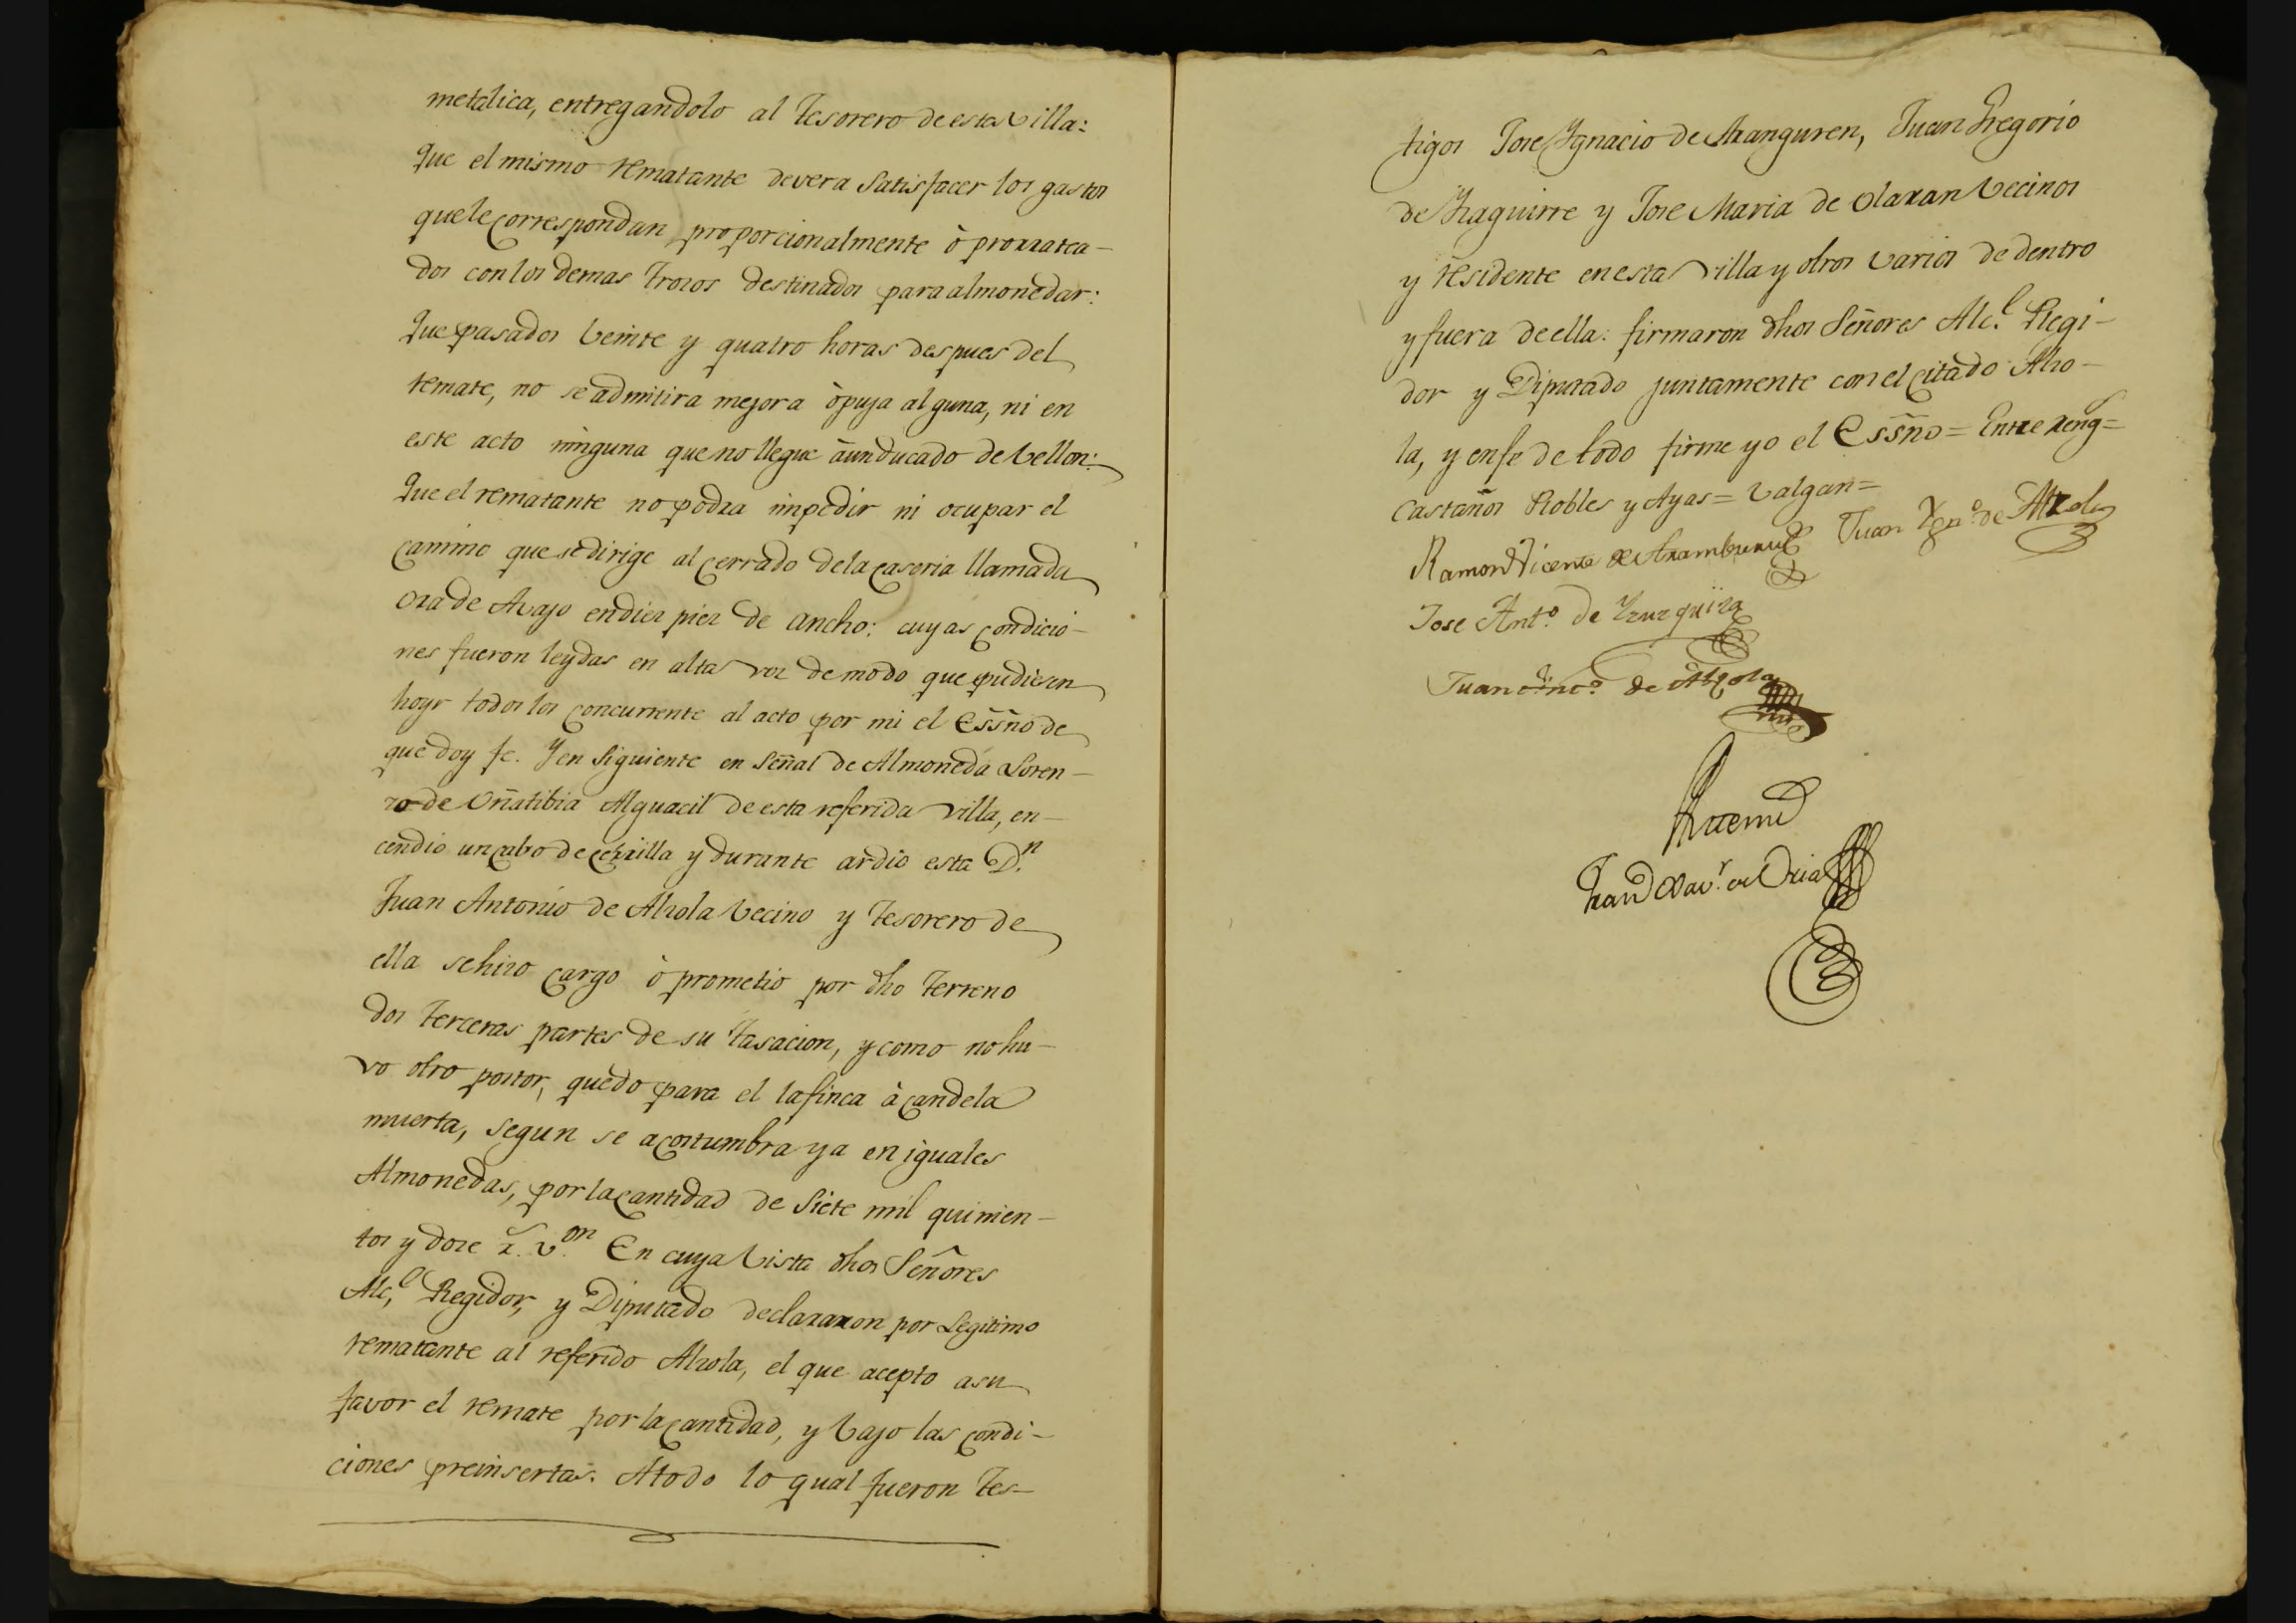 metalica, entregandolo al Tesorero de esta Villa:
Que el mismo rematante devera Satisfacer los gastos
que le correspondan proporcionalmente ò prorratea-
dos con los demas trozos destinados para almonedar:
Que pasados veinte y quatro horas despues del
remate, no se admitira mejora ò puja alguna, ni en
este acto ninguna que no llegue à un ducado de vellon:
Que el rematante no podra impedir ni ocupar el
camino que se dirige al cerrado de la caseria llamada
Oza de Avajo en diez piez de ancho: cuyas condicio-
nes fueron leydas en alta voz de modo que pudiesen
hoyr todos los concurrente al acto por mi el Essño de
que doy fe. Y en Siguiente en Señal de Almoneda Loren-
zo de Oñatibia Alguacil de esta referida villa, en-
cendio un cabo de cerilla y durante ardio esta D.n
Juan Antonio de Alzola Vecino y Tesorero de
ella se hizo cargo ò prometio por dho Terreno
dos terceras partes de su tasacion, y como no hu-
vo otro postor, quedo para el la finca à candela
muerta, segun se acostumbra ya en iguales
Almonedas, por la cantidad de Siete mil quinien-
tos y doze r. v.on En cuya Vista dhos Señores
Alc.l Regidor, y Diputado declararon por Legitimo
rematante al referido Alzola, el que acepto a su
favor el remate por la cantidad, y bajo las condi-
ciones preinsertas. A todo lo qual fueron tes-
tigos Jose Ygnacio de Aranguren, Juan Gregorio
de Yzaguirre y Jose Maria de Olaran Vecinos
y residente en esta villa y otros varios de dentro
y fuera de ella: firmaron dhos Señores Alc.l Regi-
dor y Diputado juntamente con el citado Alzo-
la, y en fe de todo firme yo el Essño = Entre reng =
Castaños Robles y Ayas = valgan =
Ramon Vicente de Aramburu Juan Ygn.o de Alzola
Jose Ant.o de Yzurquiza
Juan Ant.o de Alzola
Ante mi
Fran.co Xav.r de Oria